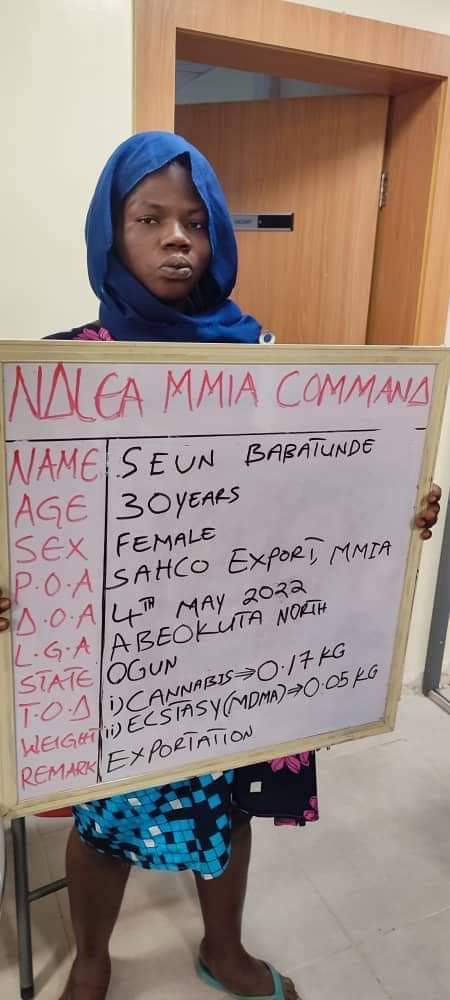 NDLEA MMIA COMMAND
NAME SEUN BABATUNDE
AGE 30YEARS
SEX FEMALE
P.O.A SAHCO EXPORT, MMIA
D.O.A 4TH MAY 2022
L.G.A ABEOKUTA NORTH
STATE OGUN
T.O.D i) CANNABIS⇒0.17 KG
WEIGHT ii) ECSTASY (MDMA)⇒0.05 KG
REMARK EXPORTATION